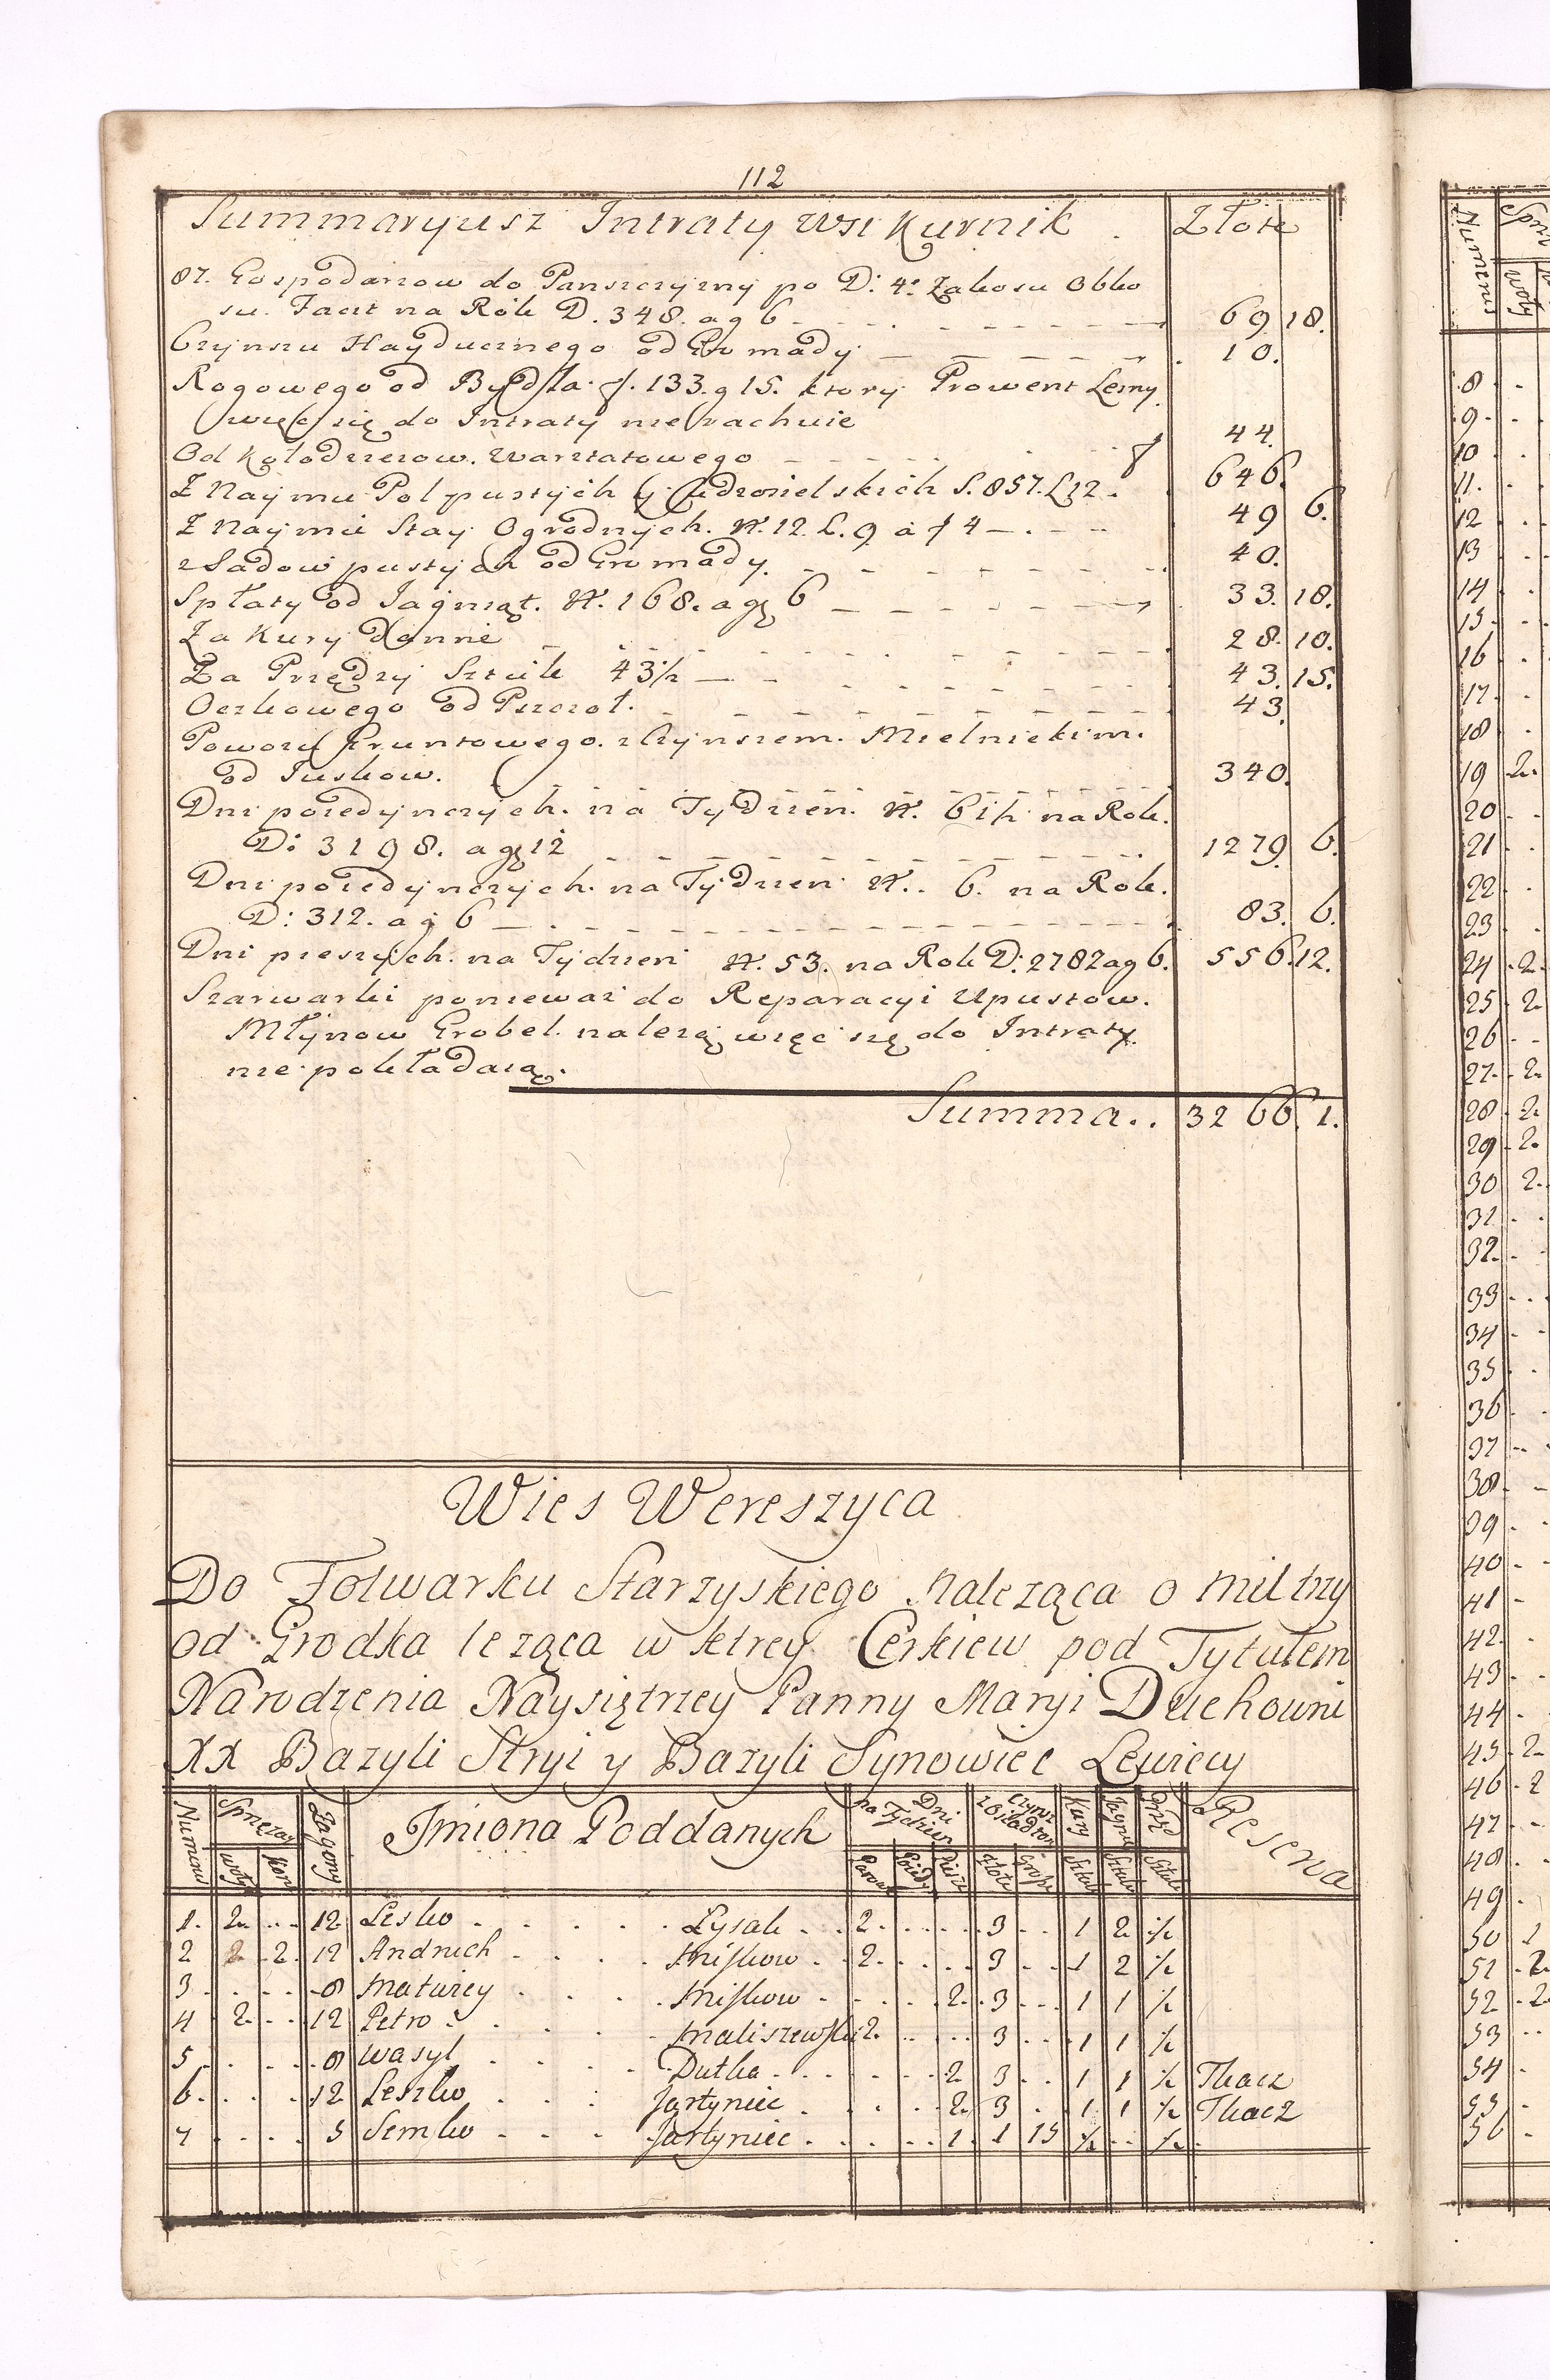 112
Summaryusz Intraty Wsi Kurnik. Złote
87. Gospodarzow do Panszczyzny po D: 4. Zakosu Obko
su. Facit na Rok D. 348. a g 6 69 18.
Czynszu Hayducznego od Gromady 10.
Rogowego od Bydła. f. 133. g 15. ktory Prowent Lezny
więc się do Intraty nie rachuie
Od Kołodzieiow. Warztatowego 44.
Z Naymu Pol pustych y S. 857. L 12. 646.
Z Naymu Stay Ogrodnych. N. 12. L. 9 a f 4 49 6.
z Sadow pustych od Gromady. 40.
Spłaty od Jagniąt. N. 168. a gę 6 33. 18.
Za Kury Danne 28. 10.
Za Przędzy Sztuk 43½ 43. 15.
Oczkowego od Pszczoł. 43.
Powozu Gruntowego. z Czynszem. Mielnickim.
od Juskow. 340.
Dni poiedynczych. na Tydzien. N. 61½ na Rok.
D: 3198. a gę 12 1279. 6.
Dni poiedynczych. na Tydzien N.. 6. na Rok.
D: 312. a g 6 83. 6.
Dni pieszych. na Tydzien N. 53. na Rok D: 2782 a g 6. 556. 12.
Szarwarki poniewaz do Reparacyi Upustow.
Młynow Grobel. nalezą więc się do Intraty
nie pokładaią.
Summa.. 3266. 1.
Wies Wereszyca
Do Folwarku Starzyskiego Naleząca o mil trzy
od Grodka leząca w ktrey Cerkiew pod Tytułem
Narodzenia Naysiętrzey Panny Maryi Duchowni
XX Bazyli Stryi y Bazyli Synowiec Lewiecy
Numerus Sprzezay Zagony Imiona Poddanych Dni na Tydzien Czynsz Kury Jagnie Przęd Resena
Woły Koni Parow Poied: Piesze Złote Grosze Sztuk Sztuk Sztuk
1. 2. 12 Lesko Lysak 2. 3 1 2 ½
2 2 2. 12 Andruch Miskow 2. 3 1 2 ½
3 8 Matwiey Miskow 2. 3 1 1 ½
4 2. 12 Petro Maliszewski 2. 3 1 1 ½
5 8 Wasyl Dutka 2 3 1 1 ½ Tkacz
6. 12 Leszko Jartyniec 2. 3 1 1 ½ Tkacz
7 5 Semko Jartyniec 1. 1 15 ½ ½
Numerus
Woły
8
9.
10
11.
12
13
14
15.
16
17.
18
19 2.
20
21
22
23.
24 2.
25 2
26
27. 2.
28 2.
29 2.
30 2.
31
32.
33
34
35
36
37
38
39
40
41
42.
43
44
45 2
46 2
47
48
49
50 1
51 2.
52. 2.
53
54
55
56